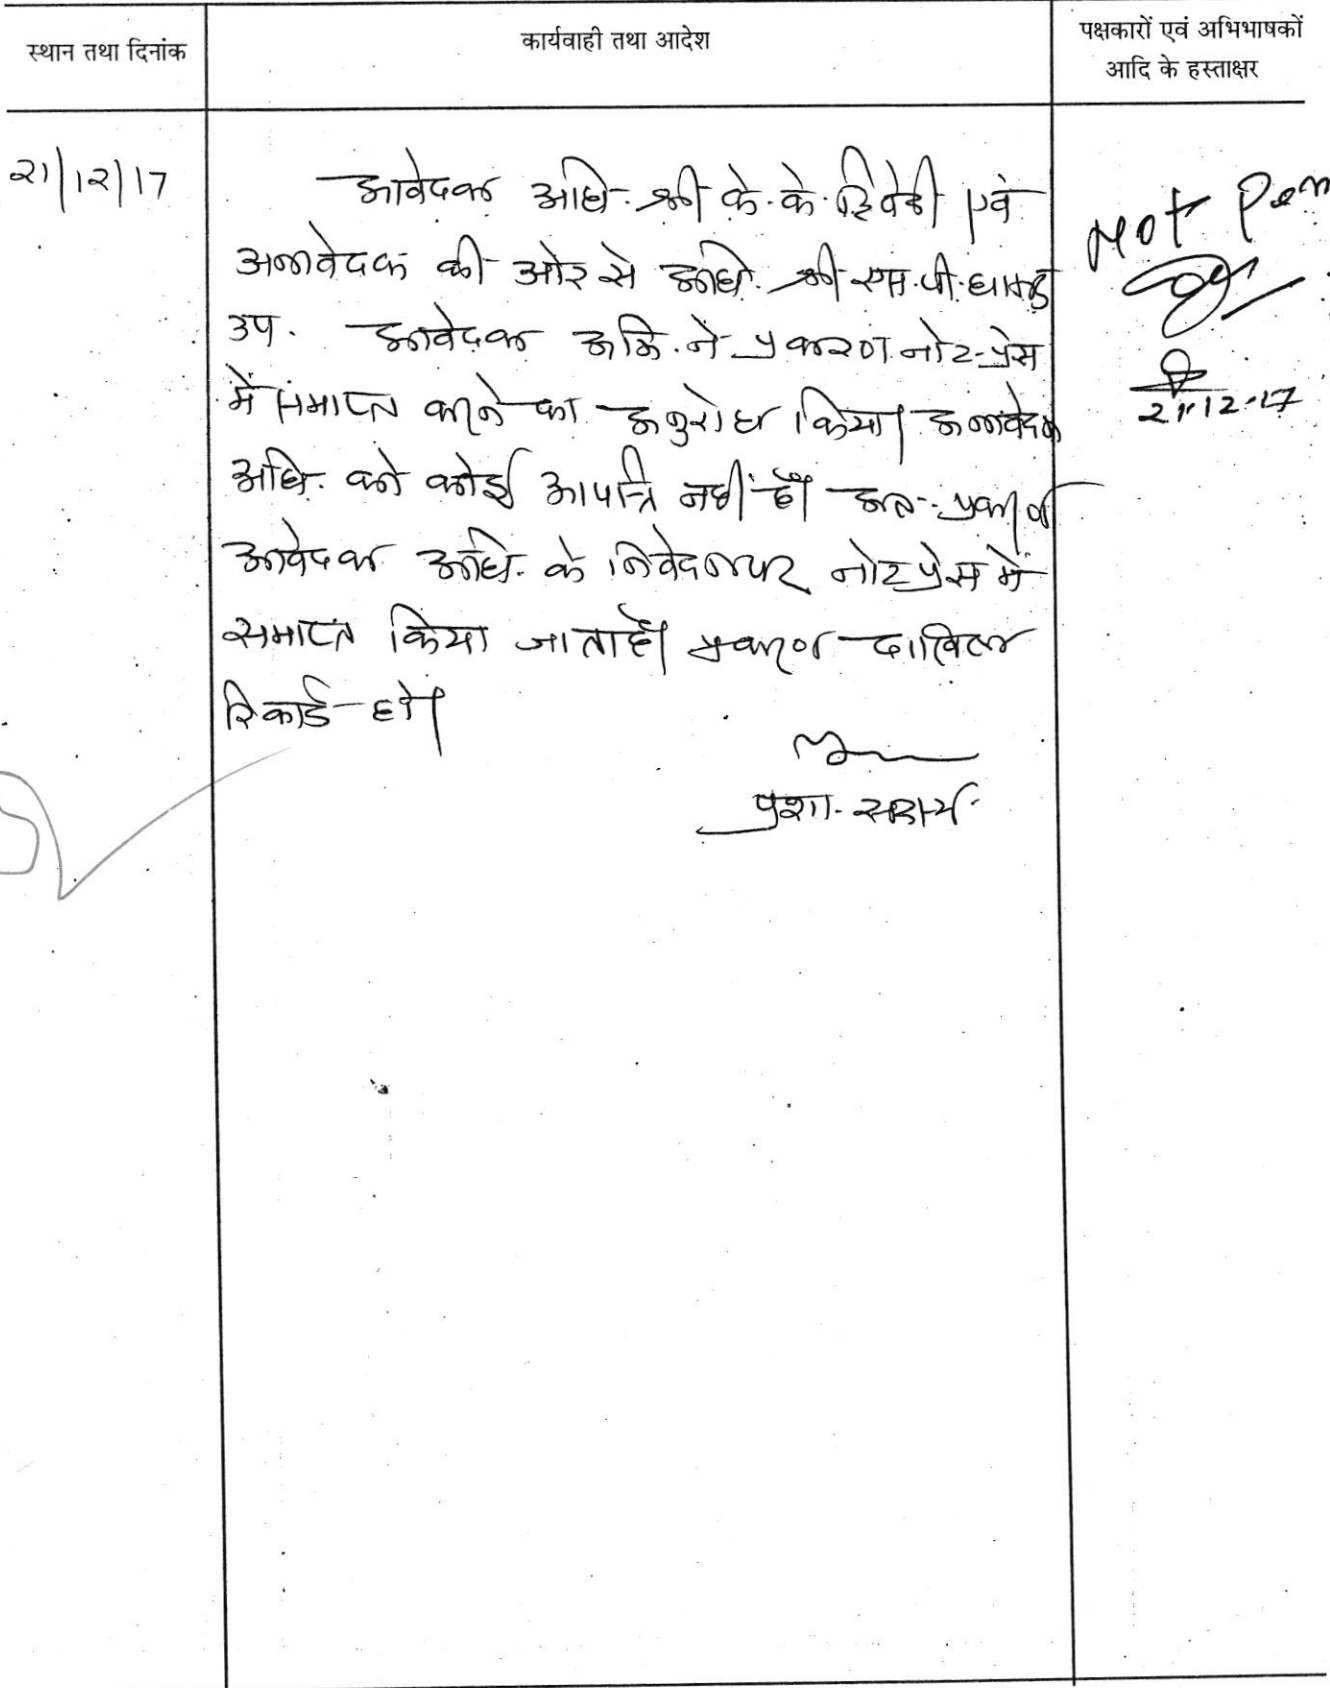 स्थान तथा दिनांक
कार्यवाही तथा आदेश
पक्षकारों एवं अभिभाषकों
आदि के हस्ताक्षर
21/12/17
आवेदक अधि. श्री के. के. द्विवेदी एवं
अनावेदक की ओर से अधि. श्री एस.पी.
उप. आवेदक अभि. ने प्रकरण नोट-प्रेस
में समाप्त करने का अनुरोध किया। अनावेदक
अधि. को कोई आपत्ति नहीं है। अतः प्रकरण
आवेदक अधि. के निवेदन पर नोट प्रेस में
समाप्त किया जाता है। प्रकरण दाखिल
रिकार्ड हो।
प्रशा. सदस्य
Not
21.12.17